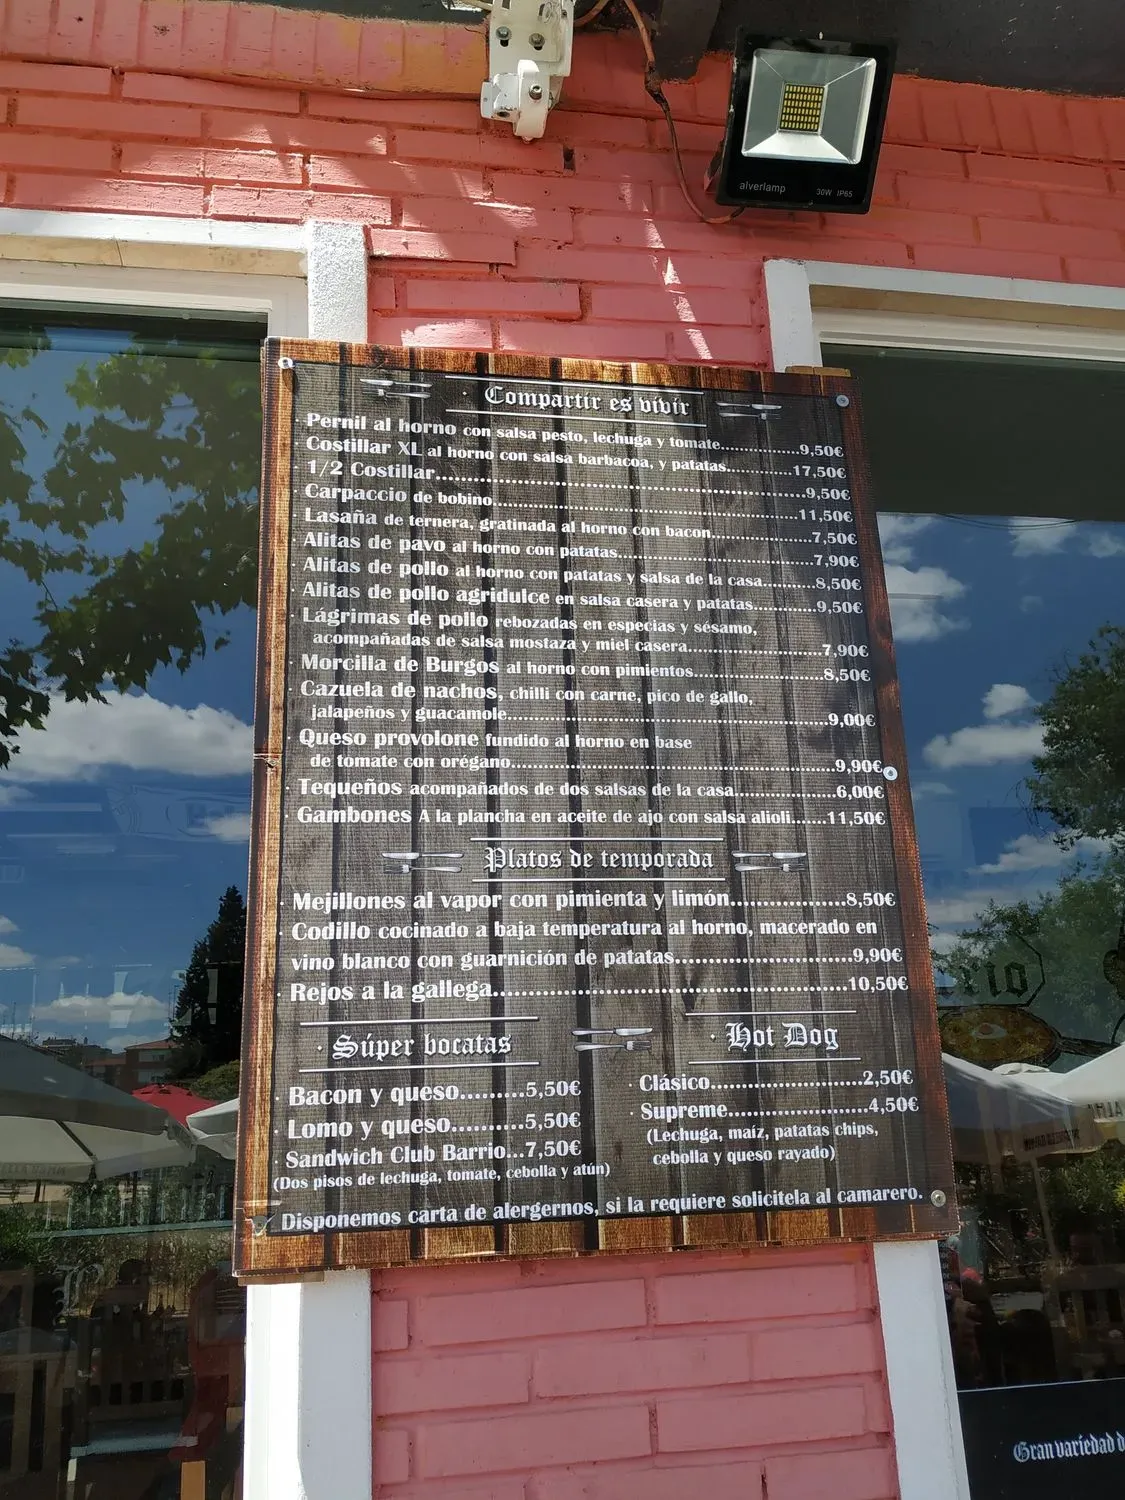 alverlamp 30W IP65
· Compartir es vivir
· Pernil al horno con salsa pesto, lechuga y tomate..................9,50€
· Costillar XL al horno con salsa barbacoa, y patatas...............17,50€
· 1/2 Costillar..................9,50€
· Carpaccio de bobino..................11,50€
· Lasaña de ternera, gratinada al horno con bacon..................7,50€
· Alitas de pavo al horno con patatas..................7,90€
· Alitas de pollo al horno con patatas y salsa de la casa............8,50€
· Alitas de pollo agridulce en salsa casera y patatas.............9,50€
· Lágrimas de pollo rebozadas en especias y sésamo,
acompañadas de salsa mostaza y miel casera..................7,90€
· Morcilla de Burgos al horno con pimientos..................8,50€
· Cazuela de nachos, chilli con carne, pico de gallo,
jalapeños y guacamole..................9,00€
· Queso provolone fundido al horno en base
de tomate con orégano..................9,90€
· Tequeños acompañados de dos salsas de la casa..................6,00€
· Gambones A la plancha en aceite de ajo con salsa alioli.......11,50€
· Platos de temporada
· Mejillones al vapor con pimienta y limón..................8,50€
· Codillo cocinado a baja temperatura al horno, macerado en
vino blanco con guarnición de patatas..................9,90€
· Rejos a la gallega..................10,50€
· Súper bocatas
· Bacon y queso..........5,50€
· Lomo y queso...........5,50€
· Sandwich Club Barrio...7,50€
(Dos pisos de lechuga, tomate, cebolla y atún)
· Hot Dog
· Clásico..................2,50€
· Supreme..................4,50€
(Lechuga, maíz, patatas chips,
cebolla y queso rayado)
· Disponemos carta de alergernos, si la requiere solicitela al camarero.
Gran variedad d